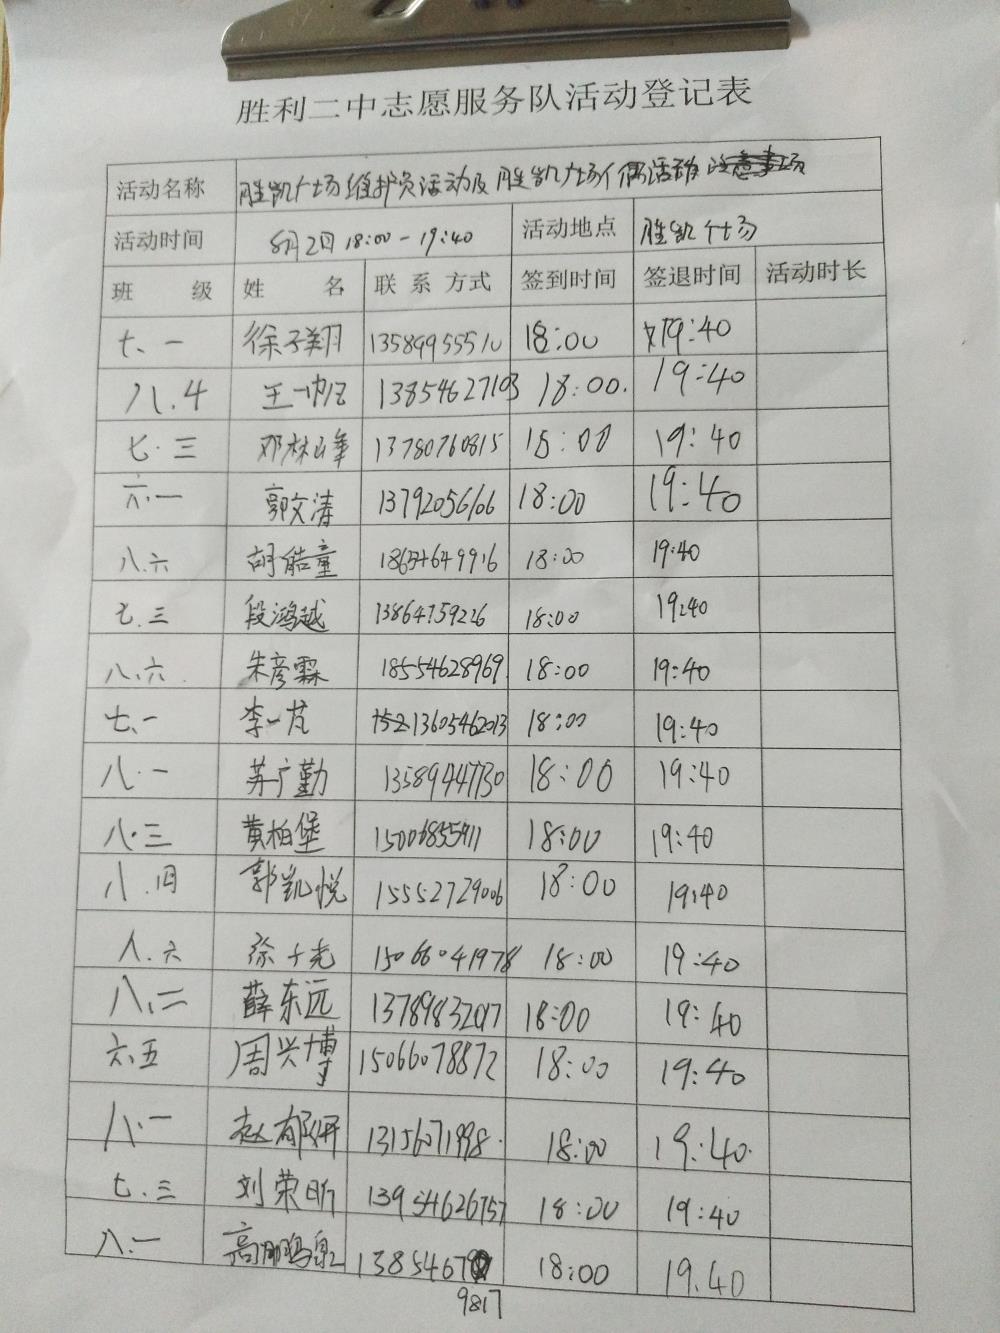 胜利二中志愿服务队活动登记表
活动名称 胜凯广场维护员活动及胜凯广场
活动时间 8月2日 18:00-19:40 活动地点 胜凯广场
班 级 姓 名 联系方式 签到时间 签退时间 活动时长
七、一 徐子翔 13589955510 18:00 19:40
八.4 王一帅 13854627103 18:00. 19:40
七.三 邓林峰 13780760815 18:00 19:40
六.一 郭文涛 13792056166 18:00 19:40
八.六 胡皓童 18:00 19:40
七.三 段鸿越 13864759226 18:00 19:40
八、六. 朱彦霖 18554628969. 18:00 19:40
七、一 李一芃 13605462013 18:00 19:40
八.一 苏广勤 13589447730 18:00 19:40
八.三 黄柏堡 15006855911 18:00 19:40
八.四 郭凯悦 15552729006 18:00 19:40
八.六 徐 15066041978 18:00 19:40
八、二 薛东远 18:00 19:40
六、五 周兴博 15066078872 18:00 19:40
八.一 赵郁妍 13156071998. 18:00 19:40.
七.三 刘荣昕 13954626757 18:00 19:40
八.一 高 1385467 18:00 19.40
9817